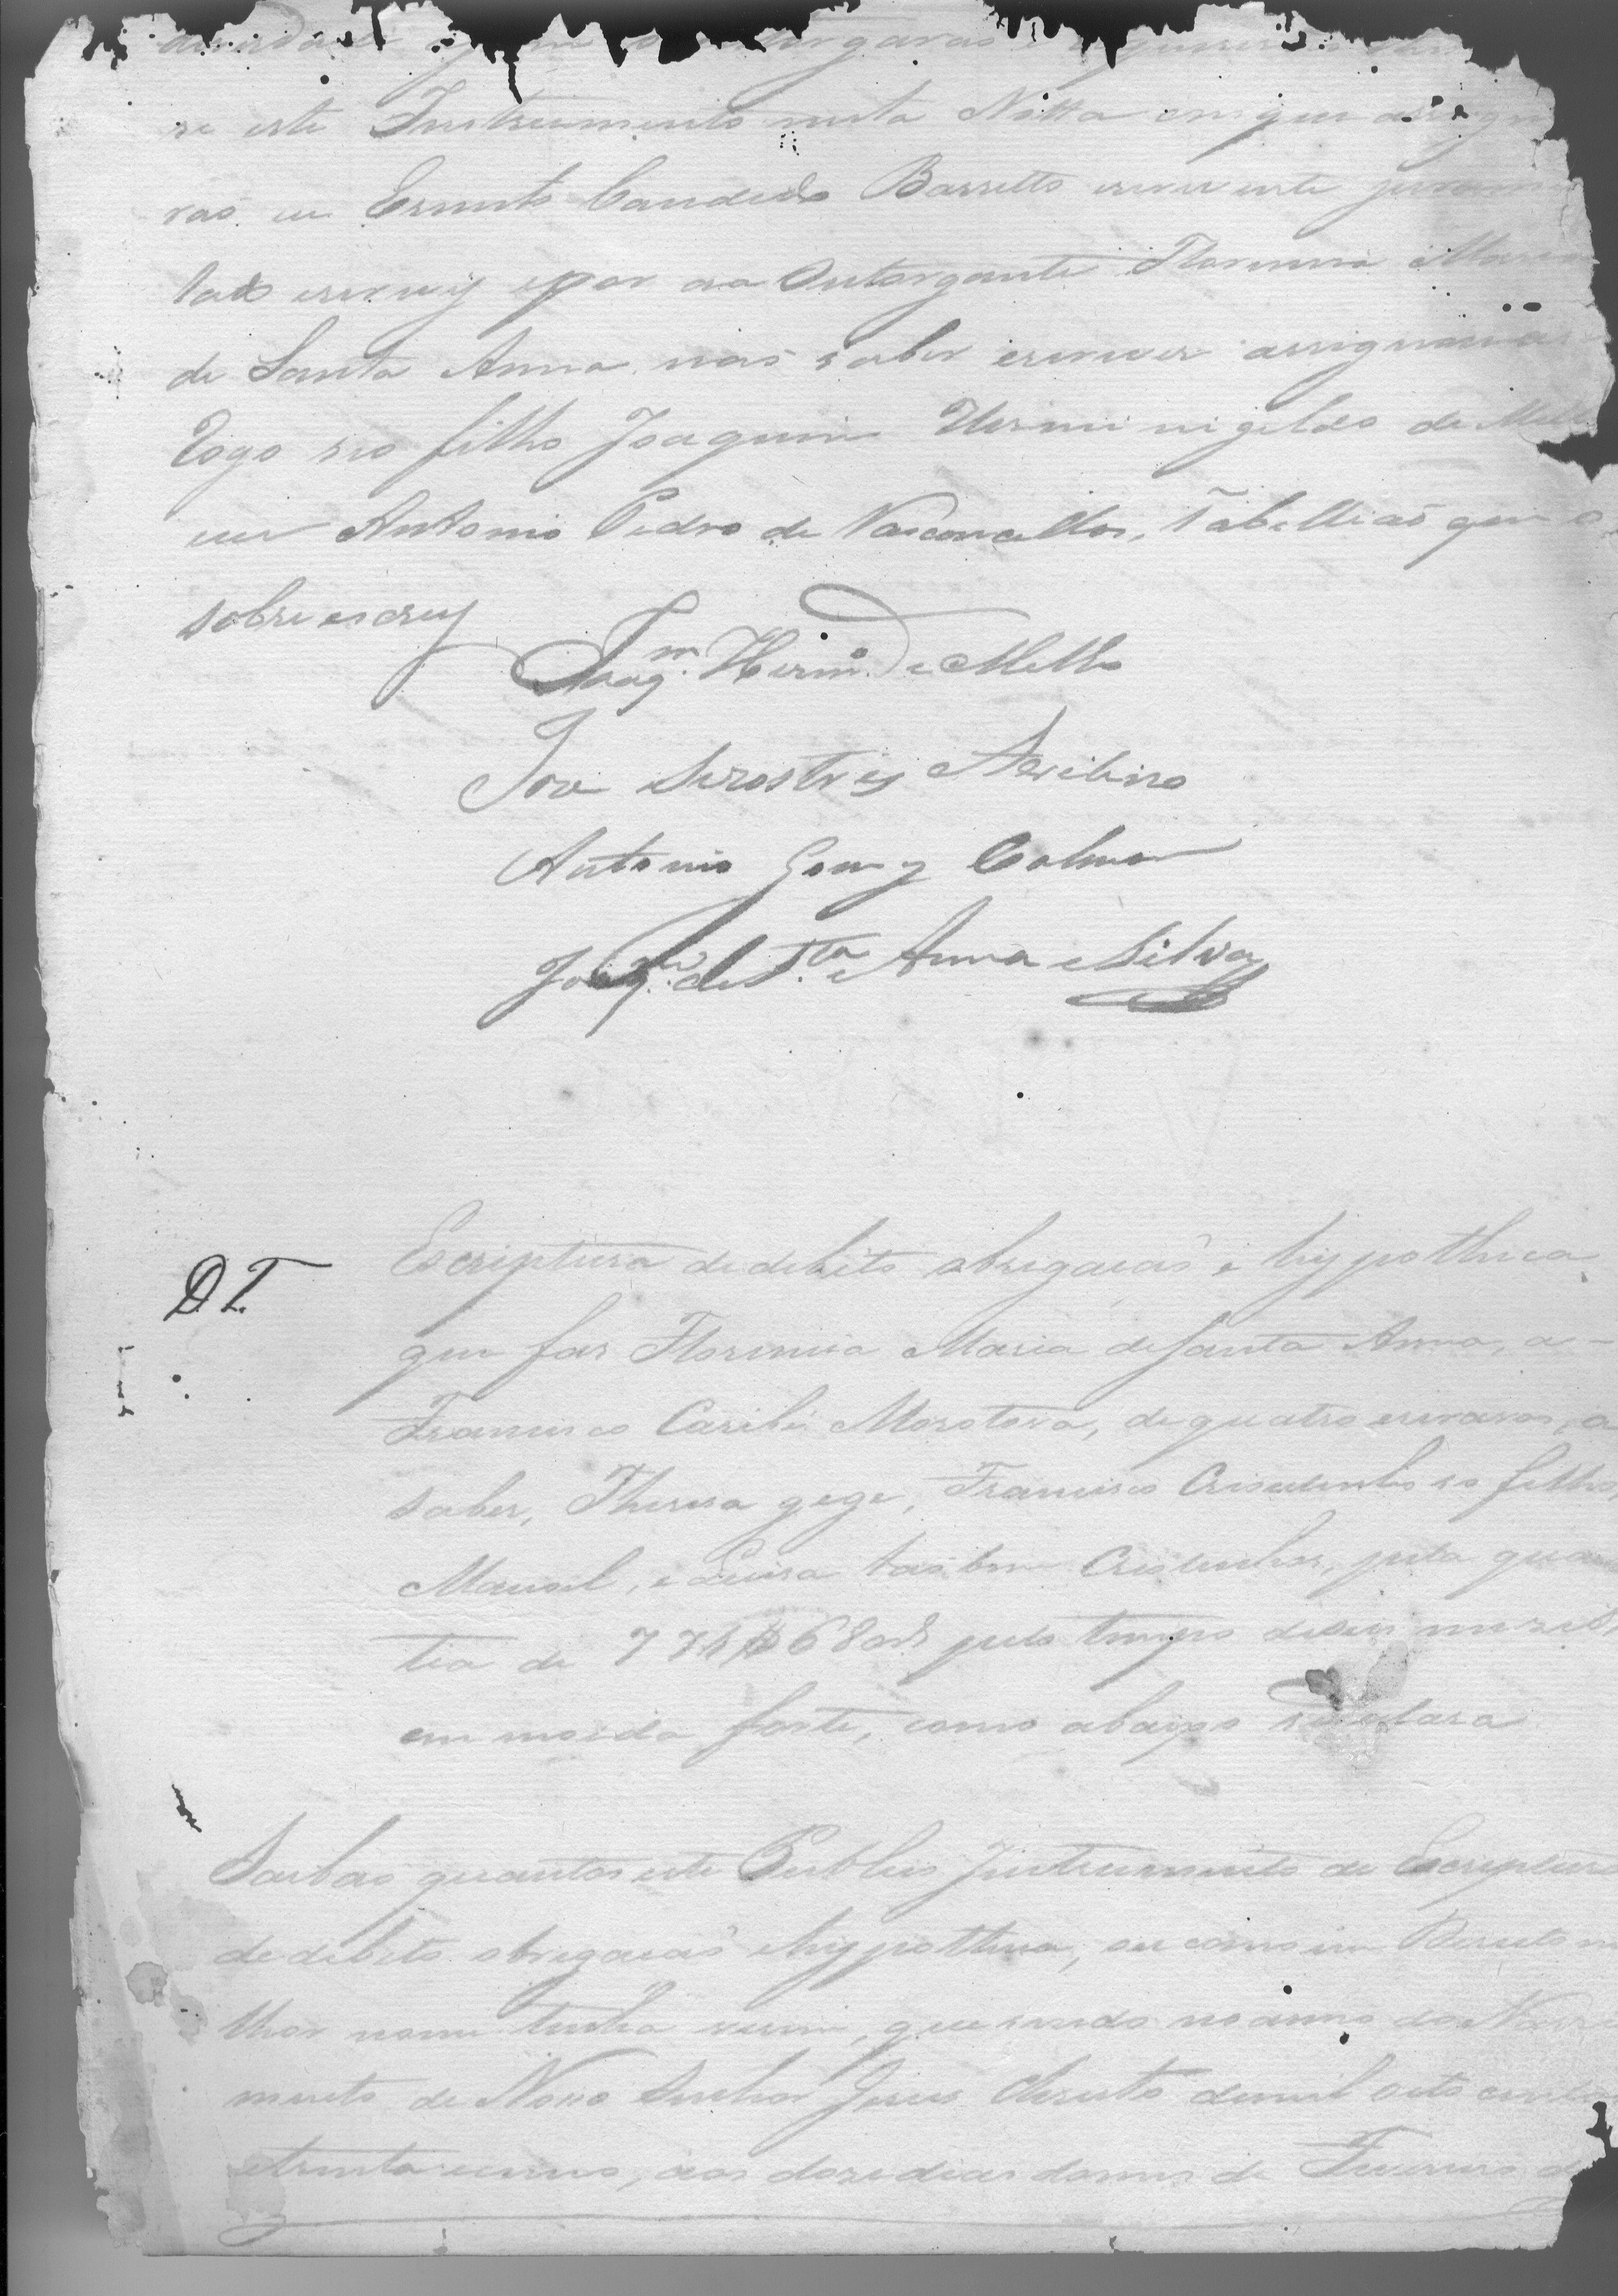 se este Instrumento nesta Notta em que assigna
raõ eu Ernesto Candido Barretto escrevente juramen
tado escrevy e por a Outorgante Florencia Maria
de Santa Anna naõ saber escrever assignou a
Rogo seo filho Joaquim Herminigildo de Mello
eu Antonio Pedro de Vasconcellos, Tabelliaõ que o
sobre escrevy
Joaqm. Hermo. de Mello
Jose Serostris Avelino
Antonio Gomes Colmar
Joaqm. de Sta. Anna e Silva
D. T.
Escriptura de debito obrigacaõ e hypotheca
que fas Florencia Maria de Santa Anna, a
Francisco Caribé Morotova, de quatro escravos, a
saber, Thereza gege, Francisco Crioulinho so filho,
Manoel, e Luisa taõbem Crioulinhos, pela quan
tia de 774$680rs pelo tempo de seis mezes,
em moeda forte, como abaixo se declara
Saibaõ quantos este Publico Instrumento de Escriptura
de debito obrigacaõ e hypotheca, ou como em Direito me
lhor nome tenha virem, que sendo no anno do Nasci
mento de Nosso Senhor Jesus Christo de mil oito centos
e trinta e um, aos doze dias do mes de Fevereiro